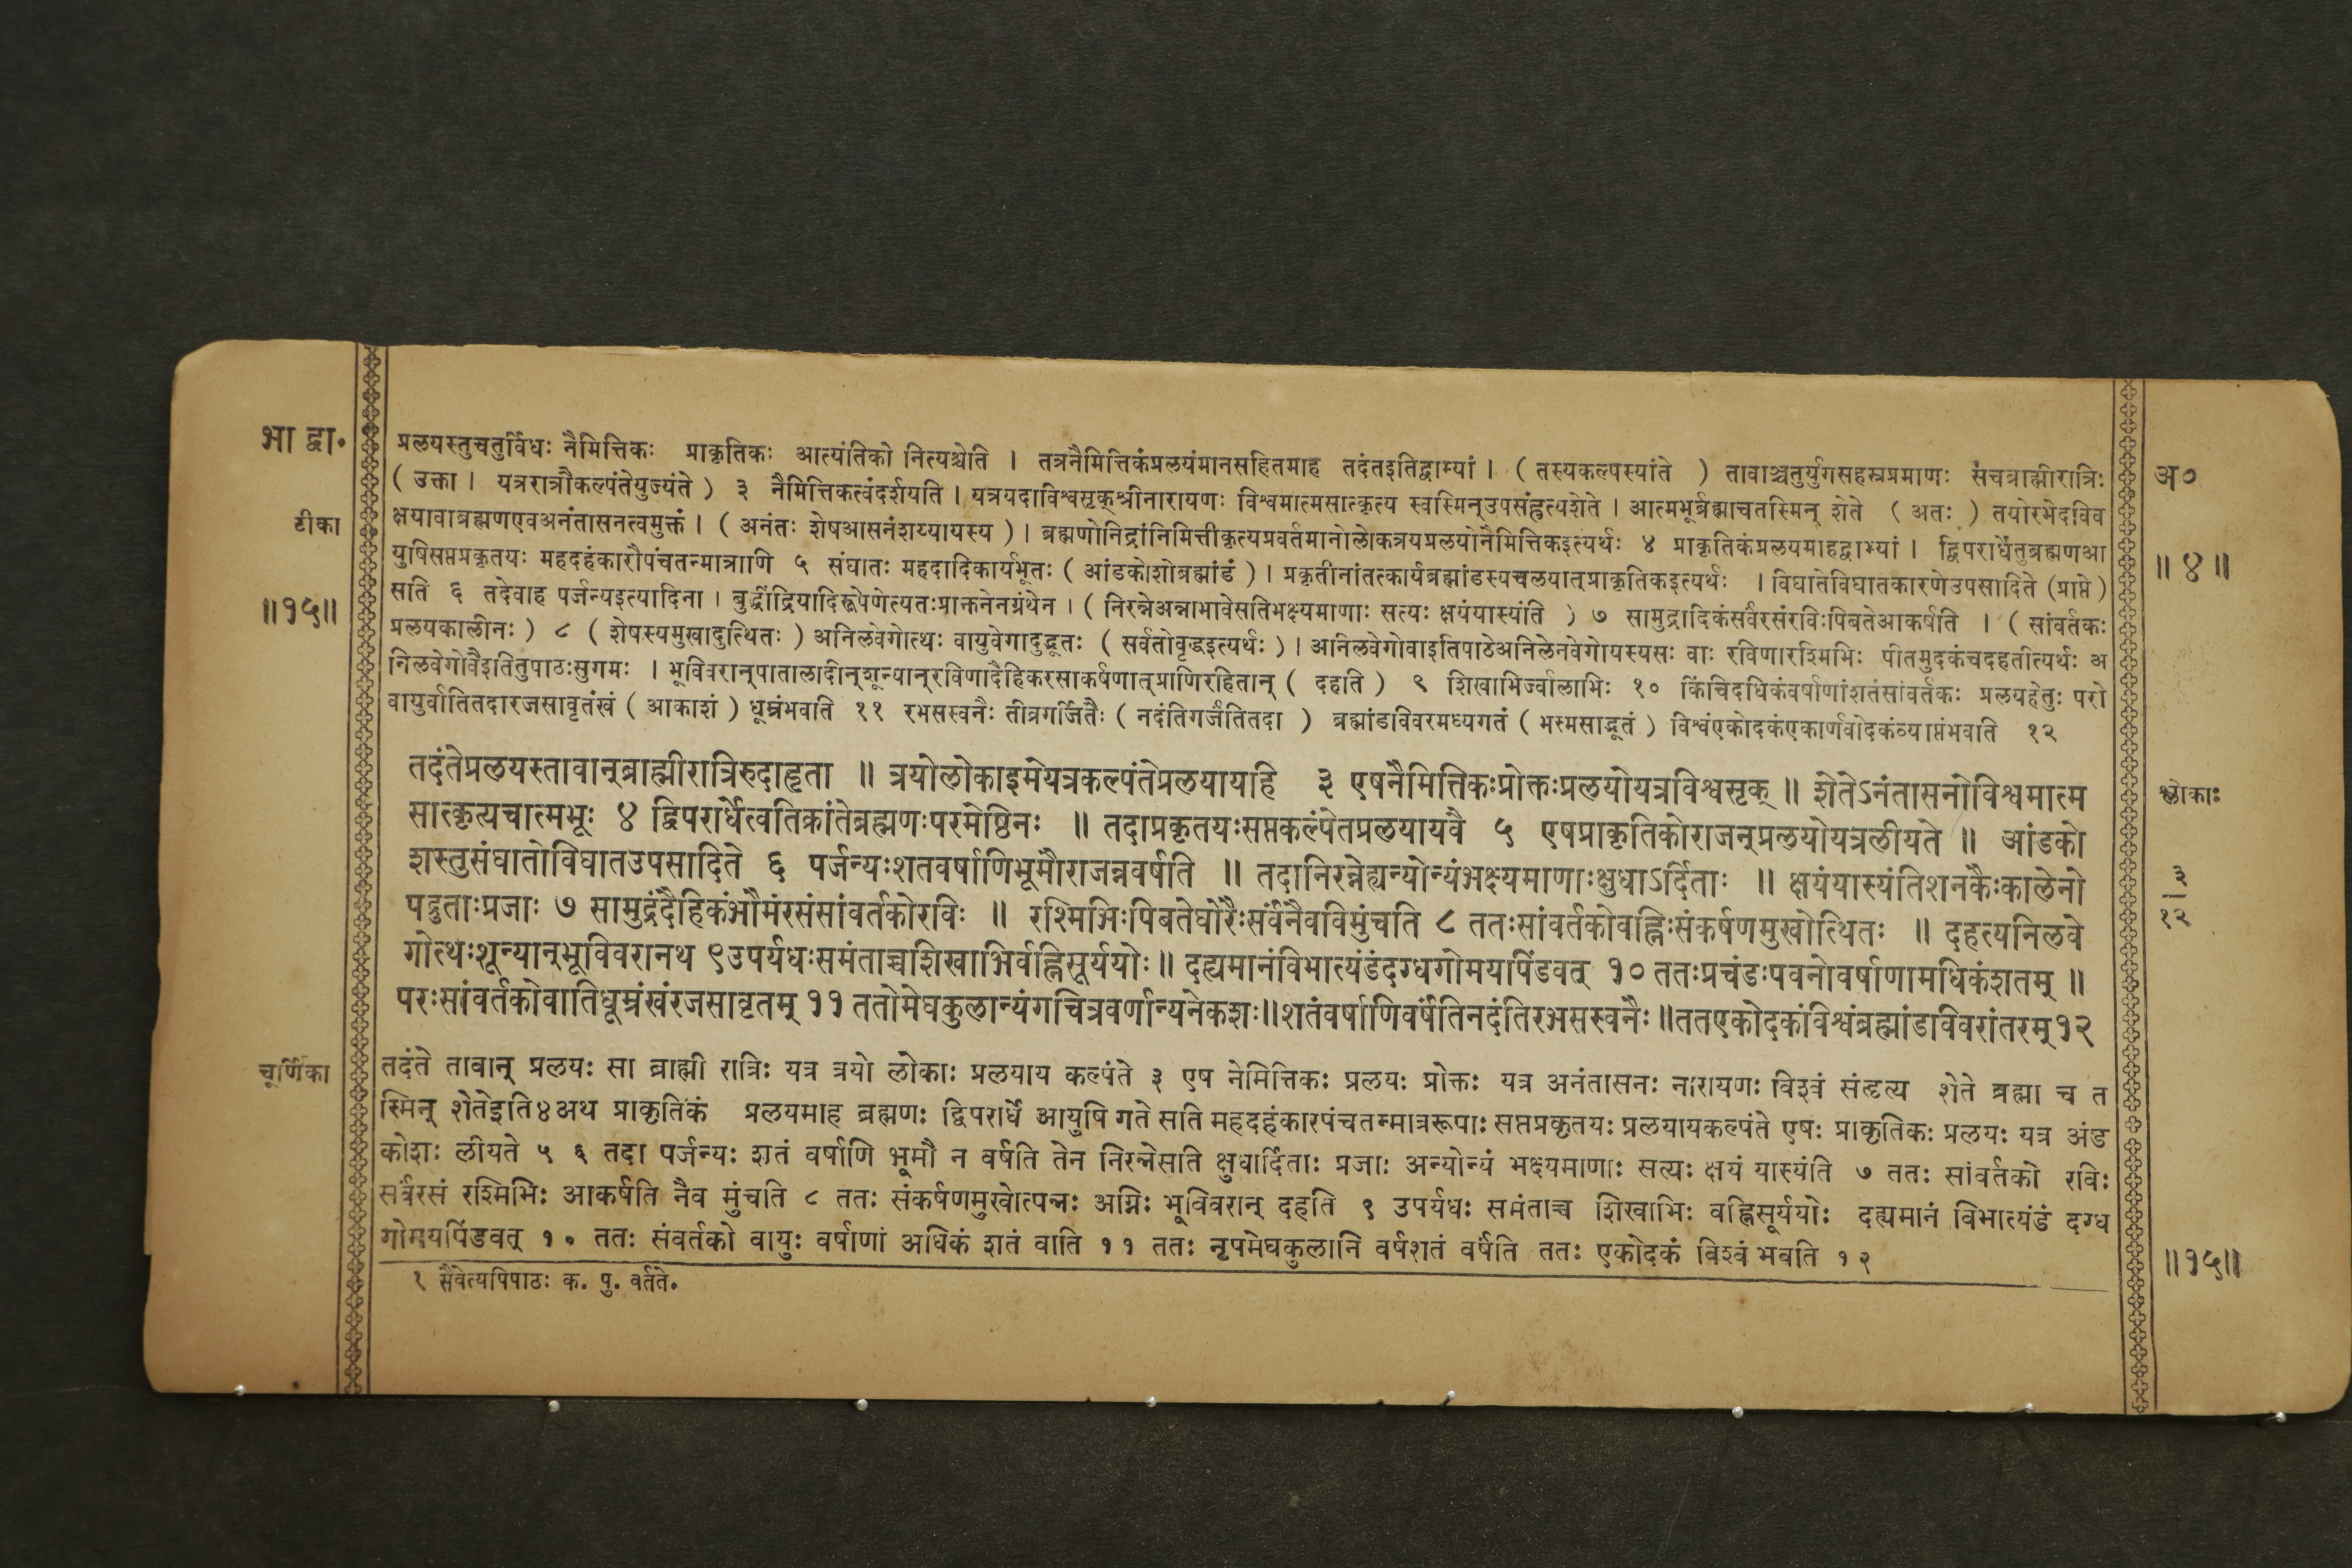 भा द्वा.
प्रलयस्तुचतुर्विधः नैमित्तिकः प्राकृतिकः आत्यंतिको नित्यश्चेति । तत्रनैमित्तिकंप्रलयंमानसहितमाह तदंतइतिद्वाभ्यां । ( तस्यकल्पस्यांते ) तावाञ्चतुर्युगसहस्रप्रमाणः संचब्राह्मीरात्रिः
( उक्ता । यत्ररात्रौकल्पंतेयुज्यंते ) ३ नैमित्तिकत्वंदर्शयति । यत्रयदाविश्वसृक्श्रीनारायणः विश्वमात्मसात्कृत्य स्वस्मिन्उपसंहृत्यशेते । आत्मभूर्ब्रह्माचतस्मिन् शेते ( अतः ) तयोरभेदविव
अ०
टीका
क्षयावाब्रह्मणएवअनंतासनत्वमुक्तं । ( अनंतः शेषआसनंशय्यायस्य ) । ब्रह्मणोनिद्रांनिमित्तीकृत्यप्रवर्तमानोलोकत्रयप्रलयोनैमित्तिकइत्यर्थः ४ प्राकृतिकंप्रलयमाहद्वाभ्यां । द्विपरार्धेतुब्रह्मणआ
युषिसप्तप्रकृतयः महदहंकारौपंचतन्मात्राणि ५ संघातः महदादिकार्यभूतः ( आंडकोशोब्रह्मांडं ) । प्रकृतीनांतत्कार्यब्रह्मांडस्यचलयात्प्राकृतिकइत्यर्थः । विघातेविघातकारणेउपसादिते (प्राप्ते )
॥ ४ ॥
सति ६ तदेवाह पर्जन्यइत्यादिना । बुद्धींद्रियादिरूपेणेत्यतःप्राक्तनेनग्रंथेन । ( निरन्नेअन्नाभावेसतिभक्ष्यमाणाः सत्यः क्षयंयास्यंति ) ७ सामुद्रादिकंसर्वंरसंरविःपिबतेआकर्षति । ( सांवर्तकः
॥१५॥
प्रलयकालीनः ) ८ ( शेषस्यमुखादुत्थितः ) अनिलवेगोत्थः वायुवेगादुद्भूतः ( सर्वतोवृद्धइत्यर्थः ) । अनिलवेगोवाइतिपाठेअनिलेनवेगोयस्यसः वाः रविणारश्मिभिः पीतमुदकंचदहतीत्यर्थः अ
निलवेगोवैइतितुपाठःसुगमः । भूविवरान्पातालादीन्शून्यान्रविणादैहिकरसाकर्षणात्प्राणिरहितान् ( दहति ) ९ शिखाभिर्ज्वालाभिः १० किंचिदधिकंवर्षाणांशतंसांवर्तकः प्रलयहेतुः परो
वायुर्वातितदारजसावृतंखं ( आकाशं ) धूम्रंभवति ११ रभसस्वनैः तीव्रगर्जितैः ( नदंतिगर्जंतितदा ) ब्रह्मांडविवरमध्यगतं ( भस्मसाद्भूतं ) विश्वंएकोदकंएकार्णवोदकंव्याप्तंभवति १२
तदंतेप्रलयस्तावान्ब्राह्मीरात्रिरुदाहृता ॥ त्रयोलोकाइमेयत्रकल्पंतेप्रलयायहि ३ एषनैमित्तिकःप्रोक्तःप्रलयोयत्रविश्वसृक् ॥ शेतेऽनंतासनोविश्वमात्म
श्लोकाः
सात्कृत्यचात्मभूः ४ द्विपरार्धेत्वतिक्रांतेब्रह्मणःपरमेष्ठिनः ॥ तदाप्रकृतयःसप्तकल्पंतेप्रलयायवै ५ एषप्राकृतिकोराजन्प्रलयोयत्रलीयते ॥ आंडको
शस्तुसंघातोविघातउपसादिते ६ पर्जन्यःशतवर्षाणिभूमौराजन्नवर्षति ॥ तदानिरन्नेह्यन्योन्यंभक्ष्यमाणाःक्षुधाऽर्दिताः ॥ क्षयंयास्यंतिशनकैःकालेनो
३
१२
पद्रुताःप्रजाः ७ सामुद्रंदैहिकंभौमंरसंसांवर्तकोरविः ॥ रश्मिभिःपिबतेघोरैःसर्वंनैवविमुंचति ८ ततःसांवर्तकोवह्निःसंकर्षणमुखोत्थितः ॥ दहत्यनिलवे
गोत्थःशून्यान्भूविवरानथ ९उपर्यधःसमंताच्चशिखाभिर्वह्निसूर्ययोः॥ दह्यमानंविभात्यंडंदग्धगोमयपिंडवत् १० ततःप्रचंडःपवनोवर्षाणामधिकंशतम् ॥
परःसांवर्तकोवातिधूम्रंखंरजसावृतम् ११ ततोमेघकुलान्यंगचित्रवर्णान्यनेकशः॥शतंवर्षाणिवर्षंतिनदंतिरभसस्वनैः॥ततएकोदकंविश्वंब्रह्मांडविवरांतरम्१२
चूर्णिका
तदंते तावान् प्रलयः सा ब्राह्मी रात्रिः यत्र त्रयो लोकाः प्रलयाय कल्पंते ३ एष नेमित्तिकः प्रलयः प्रोक्तः यत्र अनंतासनः नारायणः विश्वं संहृत्य शेते ब्रह्मा च त
स्मिन् शेतेइति४अथ प्राकृतिकं प्रलयमाह ब्रह्मणः द्विपरार्धे आयुषि गते सति महदहंकारपंचतन्मात्ररूपाः सप्तप्रकृतयः प्रलयायकल्पंते एषः प्राकृतिकः प्रलयः यत्र अंड
कोशः लीयते ५ ६ तदा पर्जन्यः शतं वर्षाणि भूमौ न वर्षति तेन निरन्नेसति क्षुधार्दिताः प्रजाः अन्योन्यं भक्ष्यमाणाः सत्यः क्षयं यास्यंति ७ ततः सांवर्तको रविः
सर्वरसं रश्मिभिः आकर्षति नैव मुंचति ८ ततः संकर्षणमुखोत्पन्नः अग्निः भूविवरान् दहति ९ उपर्यधः समंताच्च शिखाभिः वह्निसूर्ययोः दह्यमानं विभात्यंडं दग्ध
गोमयपिंडवत् १० ततः संवर्तको वायुः वर्षाणां अधिकं शतं वाति ११ ततः नृपमेघकुलानि वर्षशतं वर्षंति ततः एकोदकं विश्वं भवति १२
॥१५॥
१ सैवेत्यपिपाठः क. पु. वर्तते.